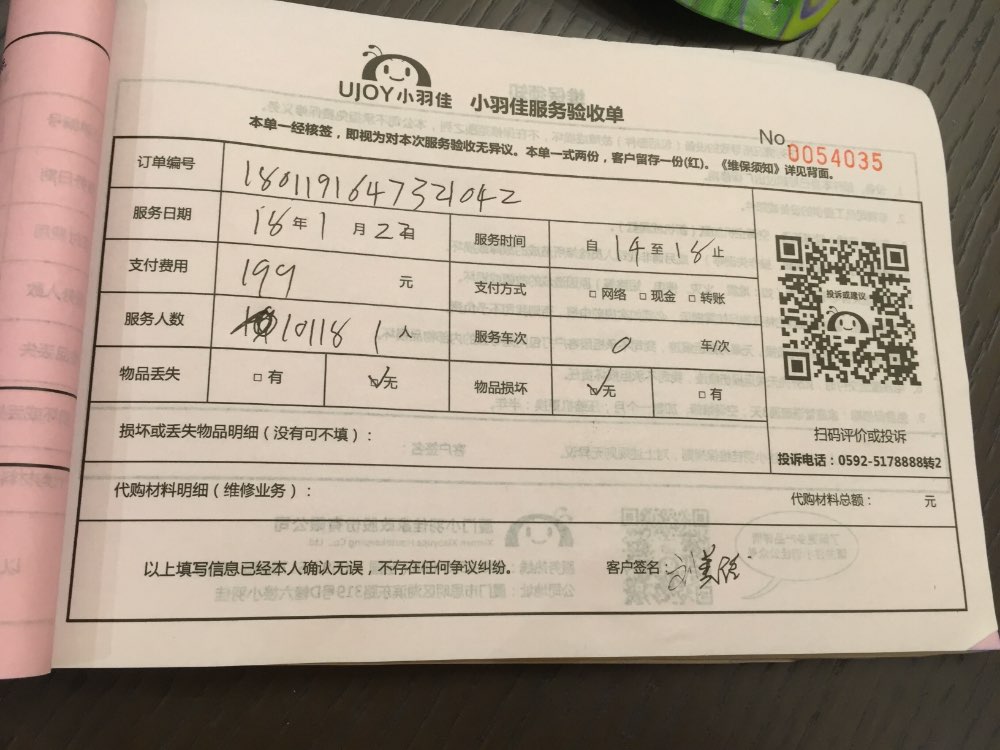 UJOY小羽佳 小羽佳服务验收单
No 0054035
本单一经核签，即视为对本次服务验收无异议。本单一式两份，客户留存一份(红)。《维保须知》详见背面。
订单编号 180119164732042
服务日期 18年1月2日 服务时间 自14至18止
支付费用 199 元 支付方式 □网络 □现金 □转账
服务人数 10118 1人 服务车次 0 车/次
物品丢失 □有 ☑无 物品损坏 ☑无 □有
投诉或建议
扫码评价或投诉
投诉电话：0592-5178888转2
损坏或丢失物品明细（没有可不填）：
代购材料明细（维修业务）： 代购材料总额： 元
以上填写信息已经本人确认无误，不存在任何争议纠纷。 客户签名：